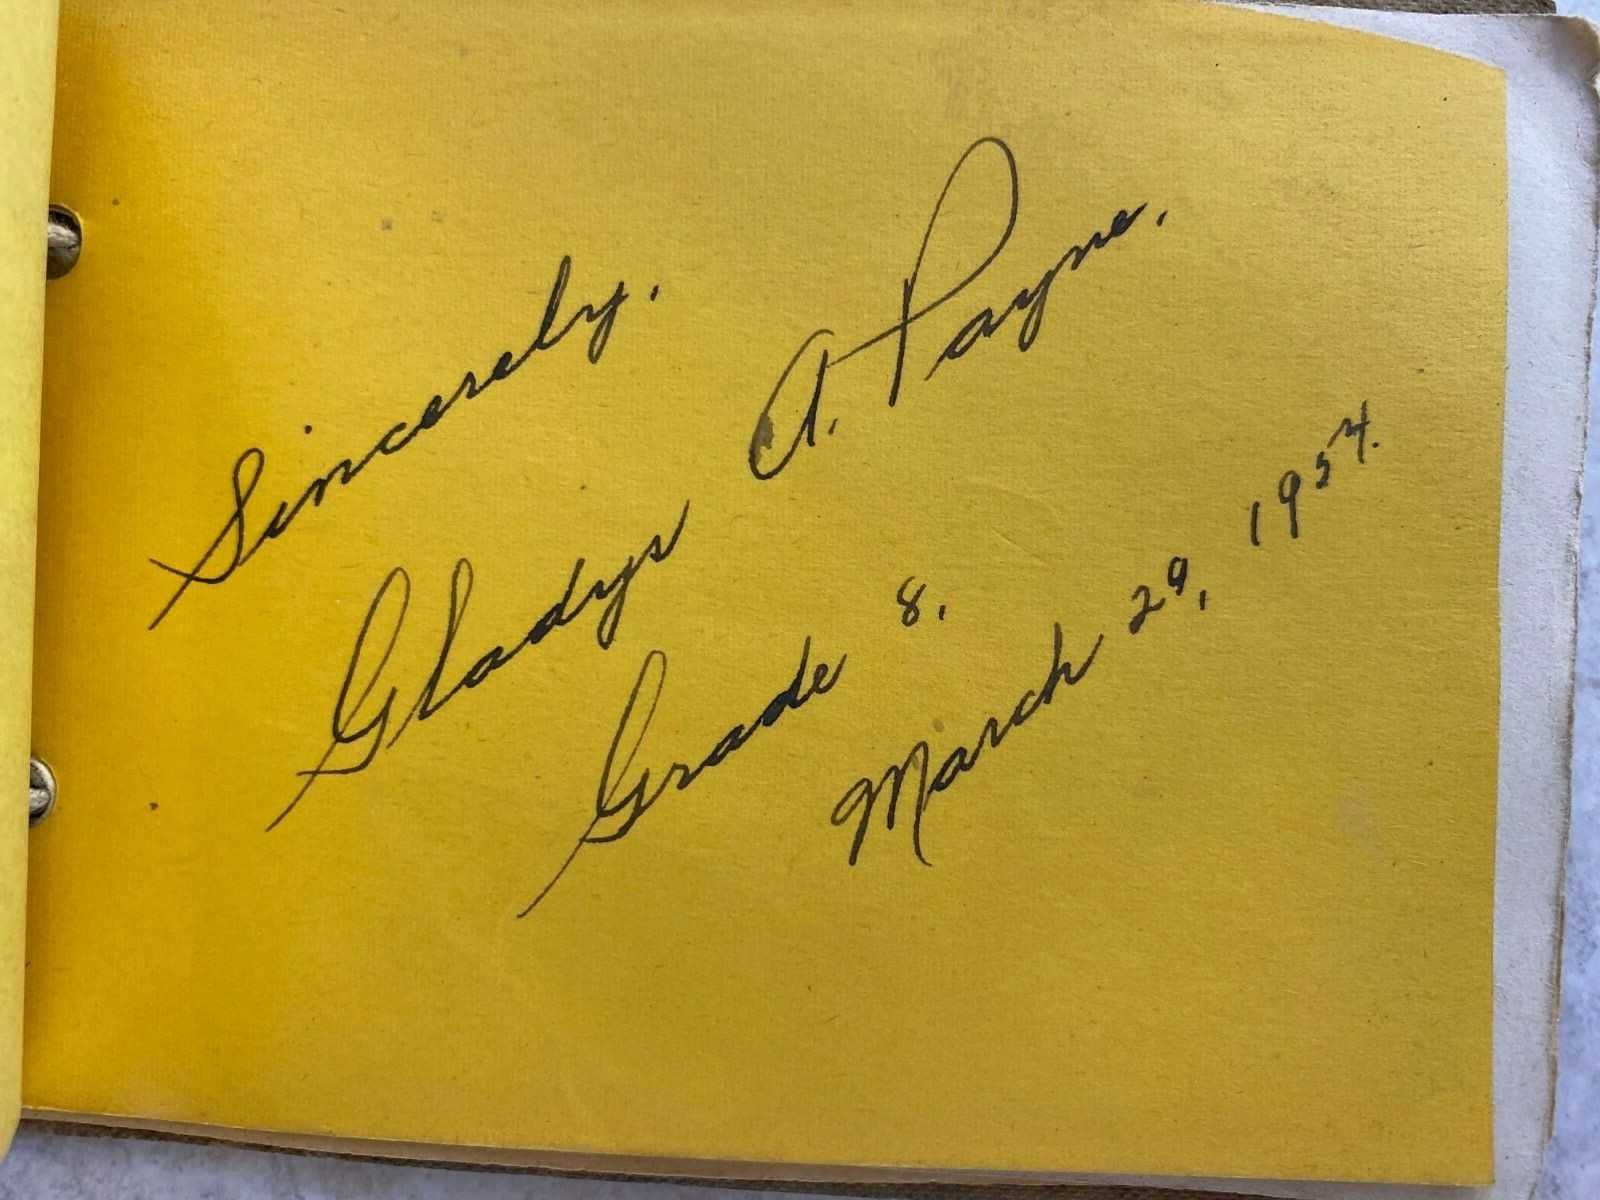 Sincerely,
Gladys A. Payne.
Grade 8.
March 29, 1954.